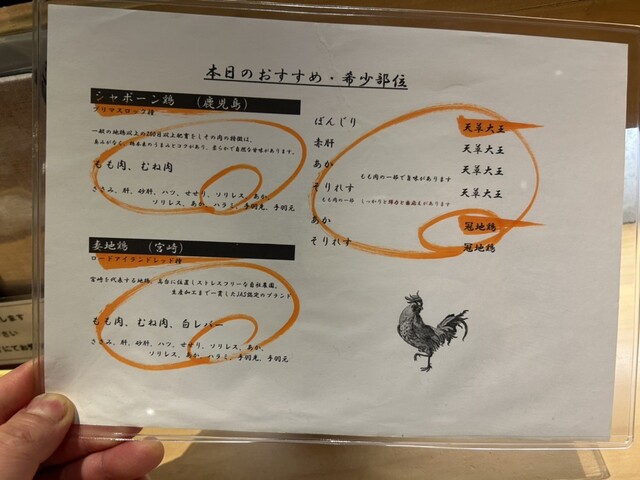 本日のおすすめ・希少部位
シャボーン鶏 （鹿児島）
プリマスロック種
一般の地鶏以上の200日以上肥育をしその肉の特徴は、
もも肉、むね肉
ささみ、肝、砂肝、ハツ、せせり、ソリレス、あか、
ソリレス、あか、ハラミ、手羽先、手羽元
妻地鶏 （宮崎）
ロードアイランドレッド種
宮崎を代表する地鶏、高台に位置しストレスフリーな自社農園、
生産加工まで一貫したJAS認定のブランド
もも肉、むね肉、白レバー
ささみ、肝、砂肝、ハツ、せせり、あか、
ソリレス、あか、ハラミ、手羽先、手羽元
ぼんじり 天草大王
赤肝 天草大王
あか 天草大王
もも肉の一部で旨味があります
そりれす 天草大王
もも肉の一部 しっかりと弾力と歯応えがあります
あか 冠地鶏
そりれす 冠地鶏
します
さい